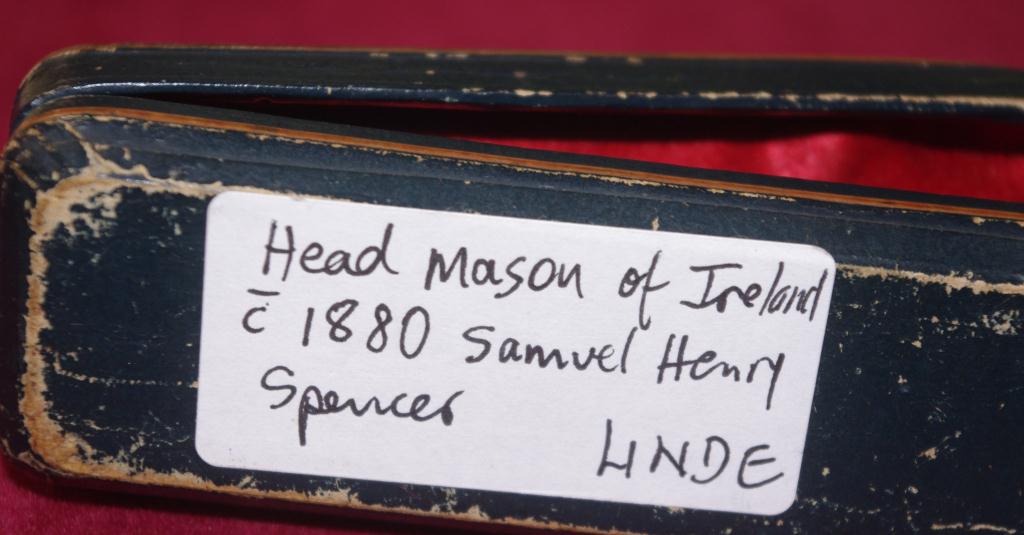 Head Mason of Ireland
c̄ 1880 Samuel Henry
Spencer
LINDE